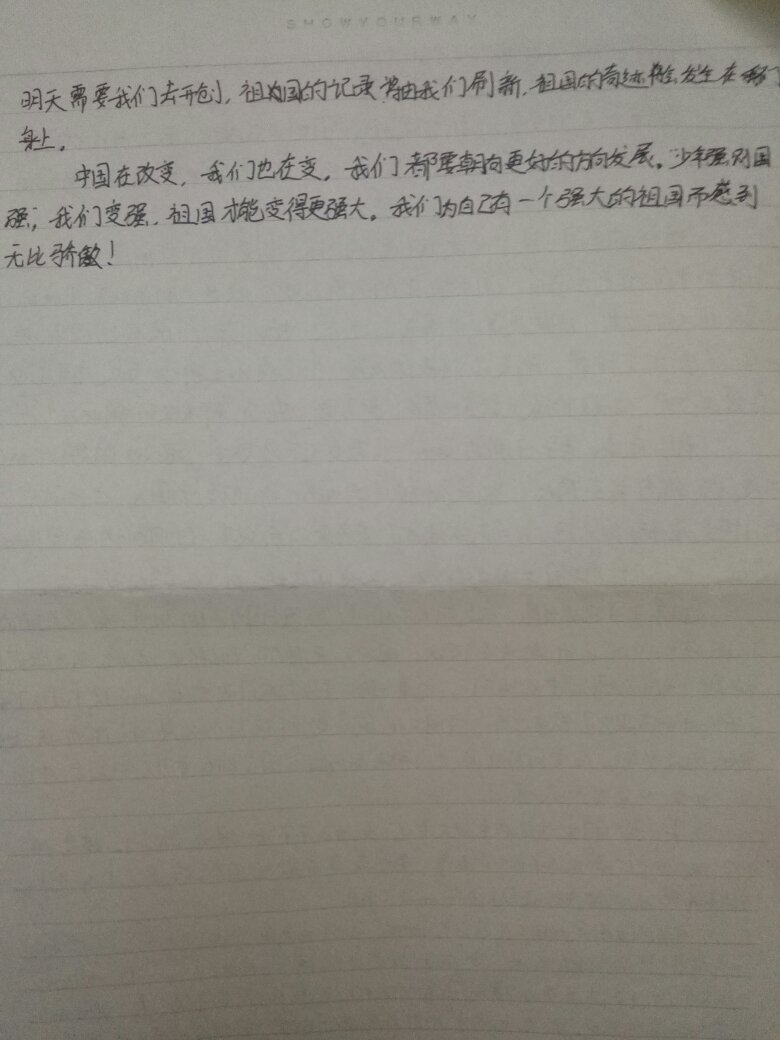 SHOWYOURWAY
明天需要我们去开创，祖国的记录将由我们刷新，祖国的奇迹将会发生在我们
身上。
中国在改变，我们也在变，我们都要朝向更好的方向发展。少年强则国
强，我们变强，祖国才能变得更强大。我们为自己有一个强大的祖国而感到
无比骄傲！